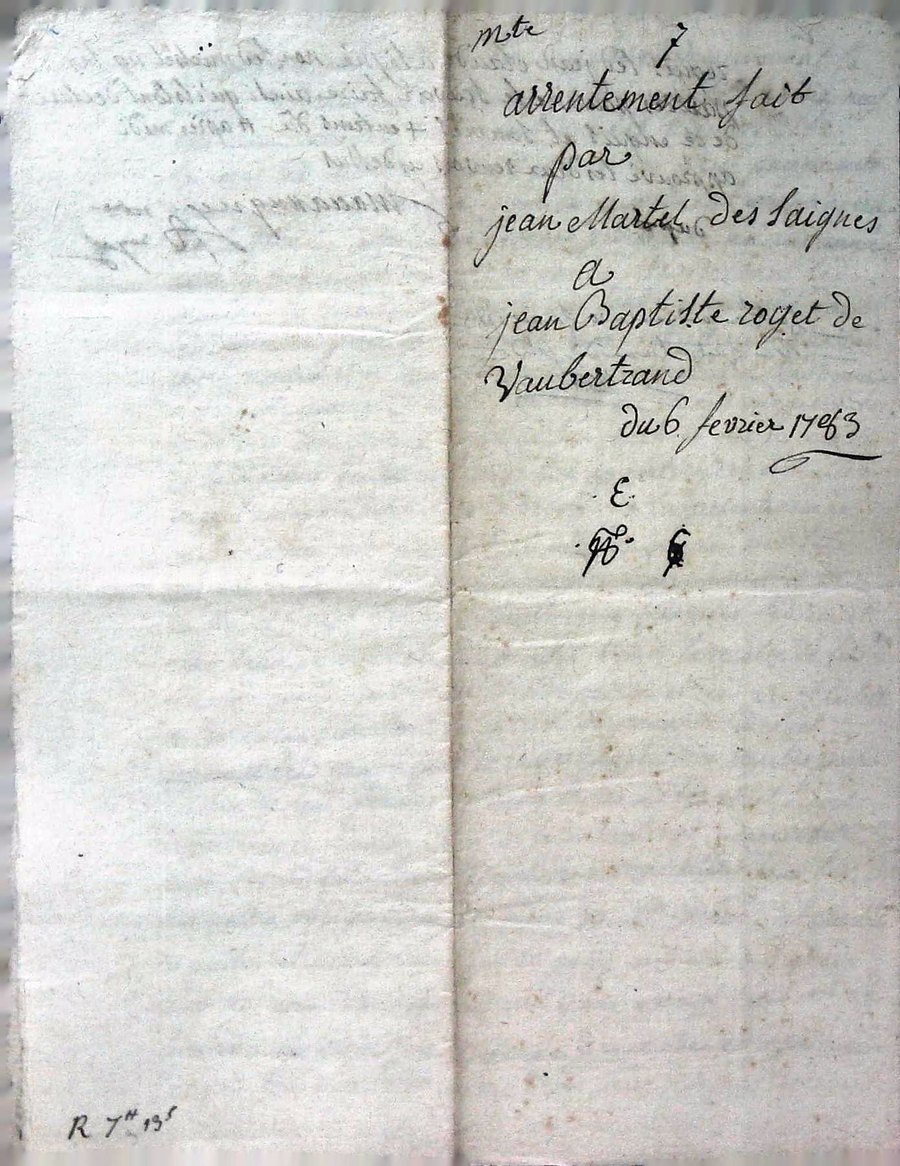 mte 7
arrentement fait
par
jean Martel des saignes
a
jean Baptiste roget de
Vaubertrand
du 6 fevrier 1783
E
R 7# 13s